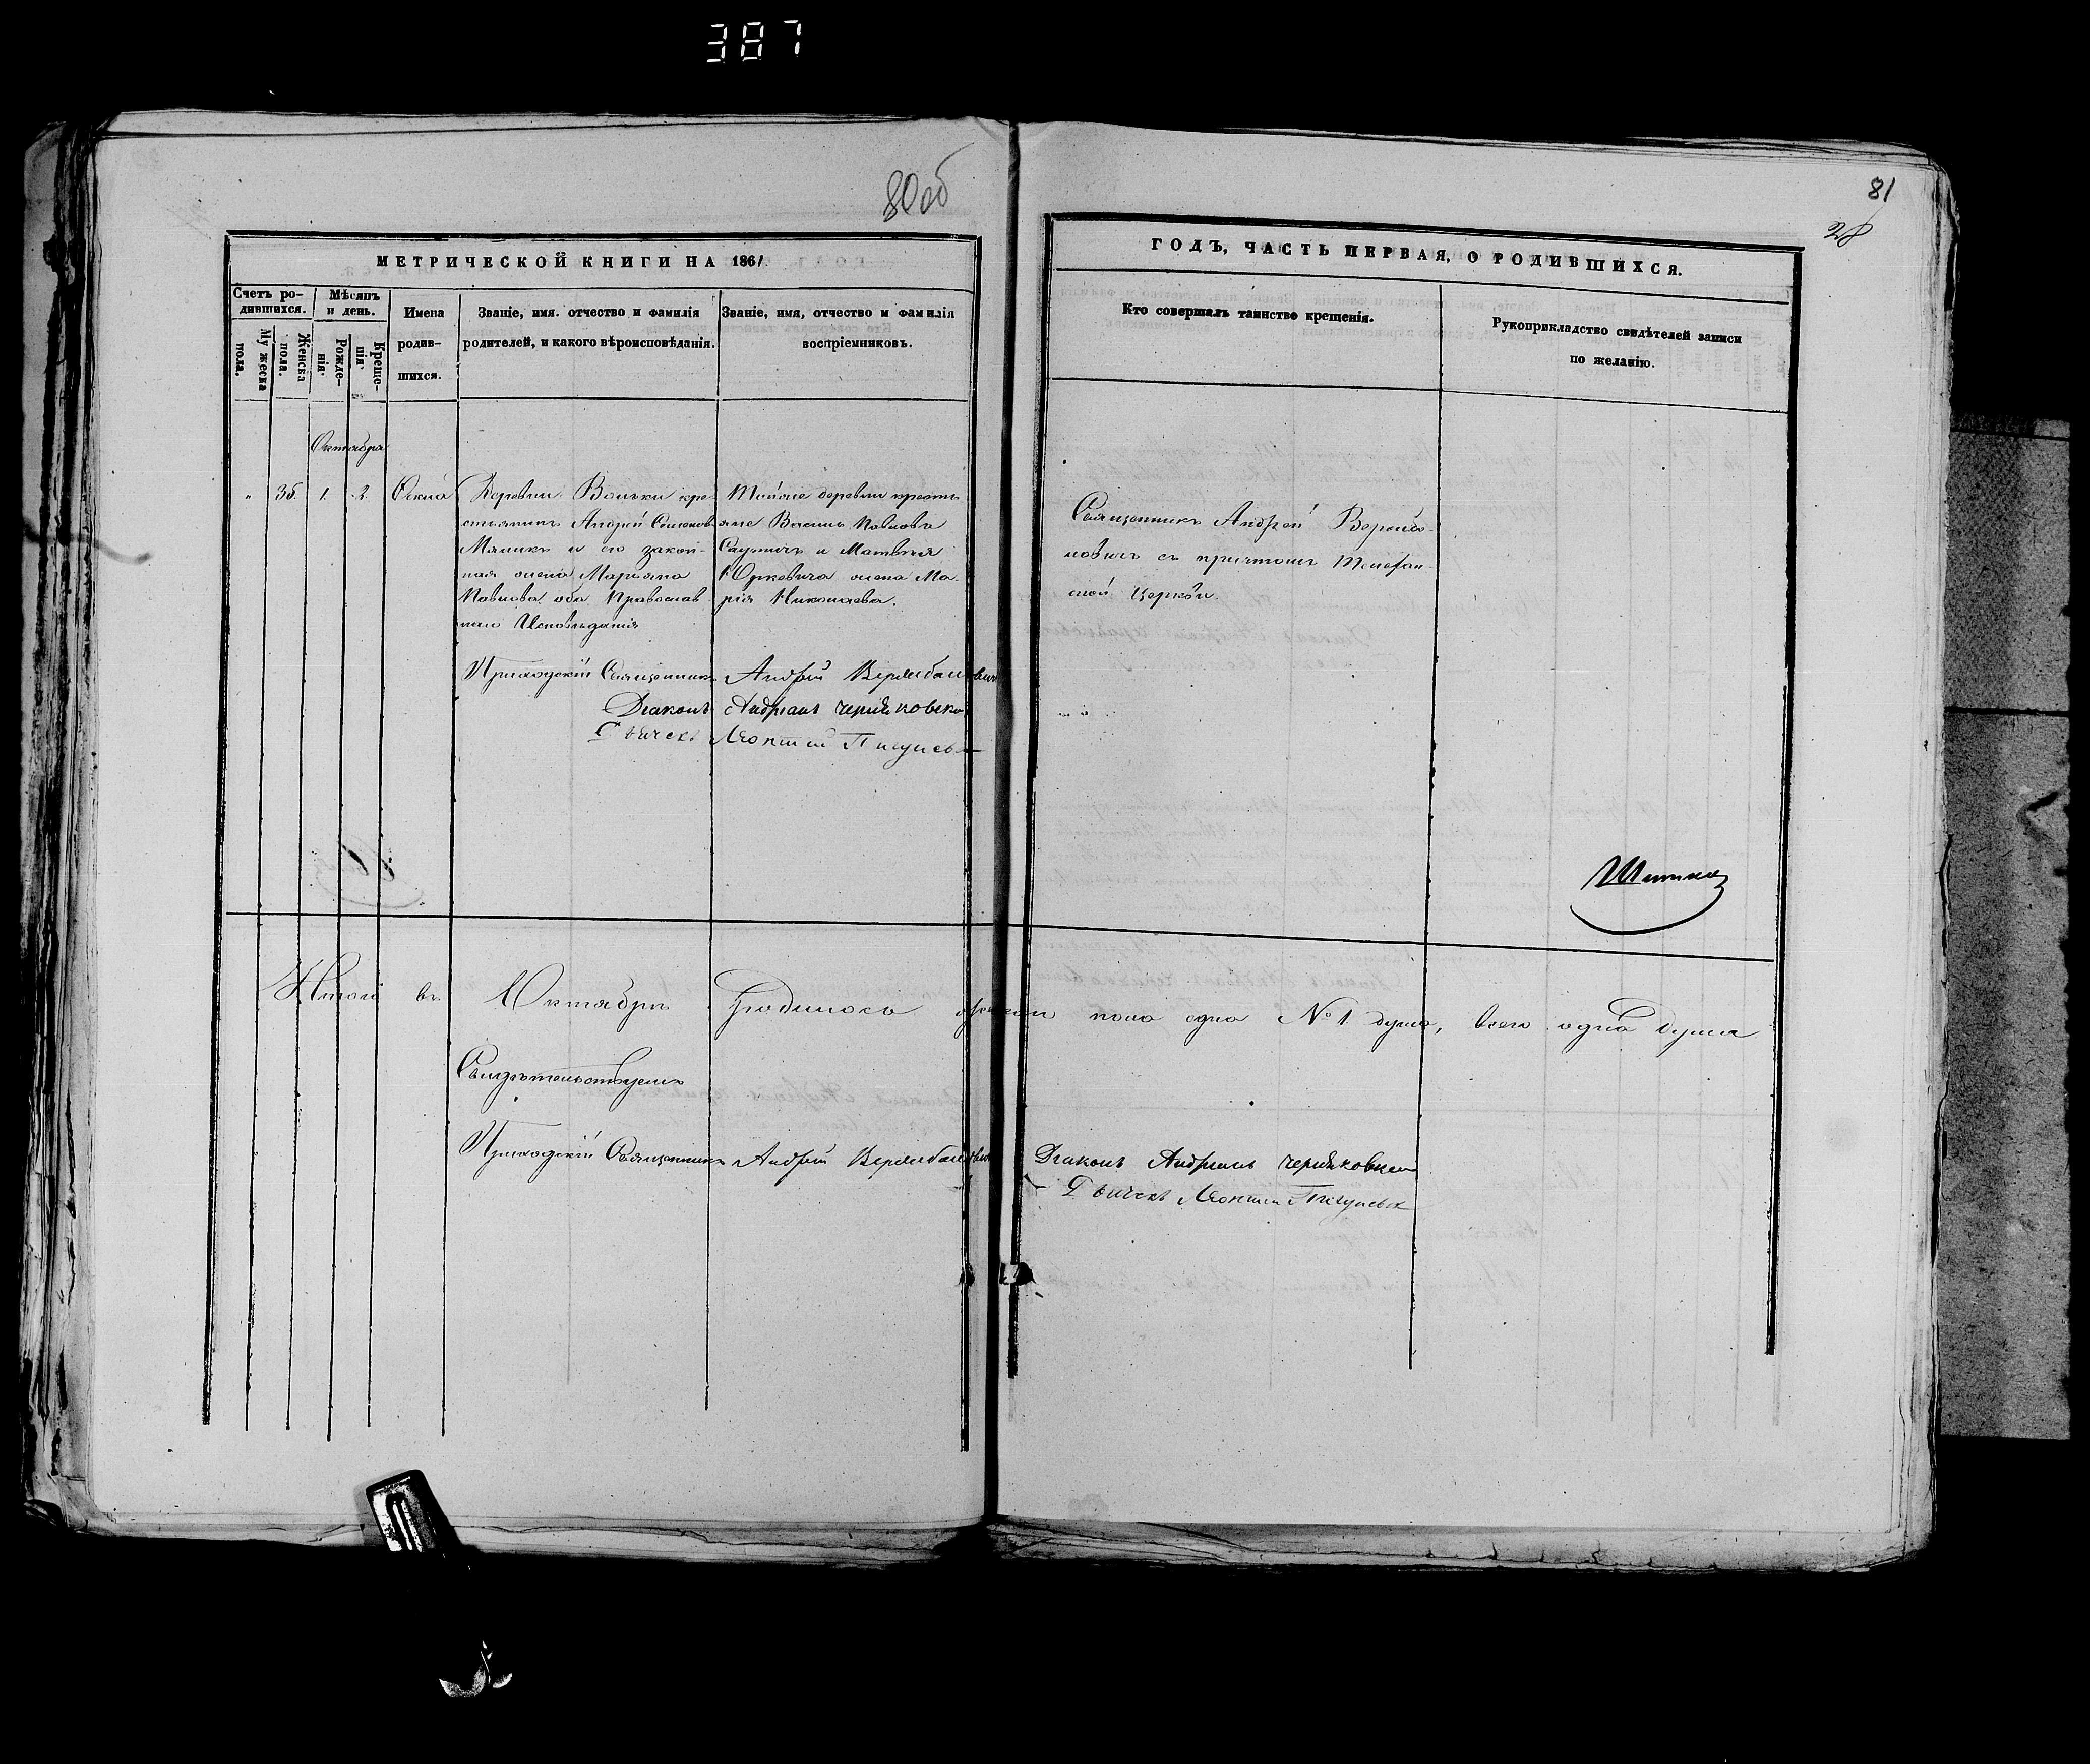 387
80 об
81
МЕТРИЧЕСКОЙ КНИГИ НА 1861.
ГОДЪ, ЧАСТЬ ПЕРВАЯ, О РОДИВШИХСЯ.
Счетъ ро-
дившихся.
Мужеска
пола.
Женска
пола.
Мѣсяцъ
и день.
Рожде-
нія.
Креще-
нія.
Имена
родив-
шихся.
Званіе, имя. отчество и фамилія
родителей, и какого вѣроисповѣданія.
Званіе, имя, отчество и фамилія
воспріемниковъ.
Кто совершалъ таинство крещенія.
Рукоприкладство свидѣтелей записи
по желанію.
Октября
" 35. 1. 2.
Деревни Вольки кре-
стьянинъ Андрей Семеновъ
и его закон-
ная жена Марьяна
Павлова оба Православ
наго Исповѣданія
Тойже деревни кресть
яне Василь Павловъ
и Матвѣя
Юркевича жена Ма-
рія Николаева.
Священникъ Андрей
съ причтомъ
ской Церкви.
Приходскій Священникъ Андрей
Діаконъ Андріанъ
Леонтій
Итого въ Октябрѣ родилось женска пола одна № 1 душа, всего одна душа
Свидѣтельствуемъ
Приходскій Священникъ Андрей
Діаконъ Андріанъ
Леонтій